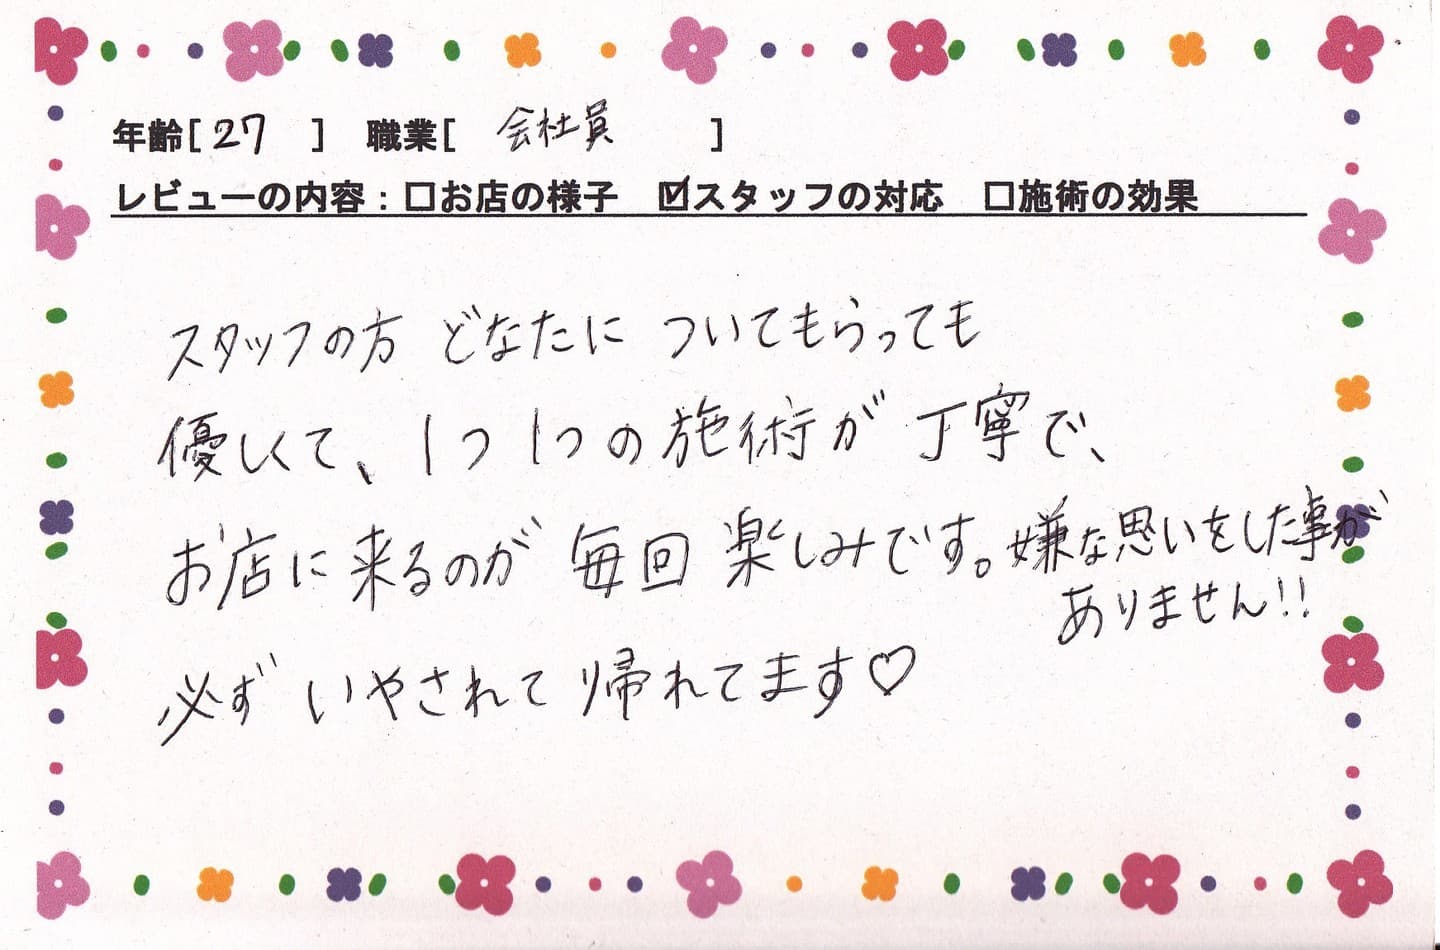 年齢[ 27 ] 職業[ 会社員 ]
レビューの内容：□お店の様子 ☑スタッフの対応 □施術の効果
スタッフの方 どなたに ついてもらっても
優しくて、1つ1つの施術が丁寧で、
お店に来るのが 毎回 楽しみです。嫌な思いをした事が
ありません!!
必ず いやされて 帰れてます♡